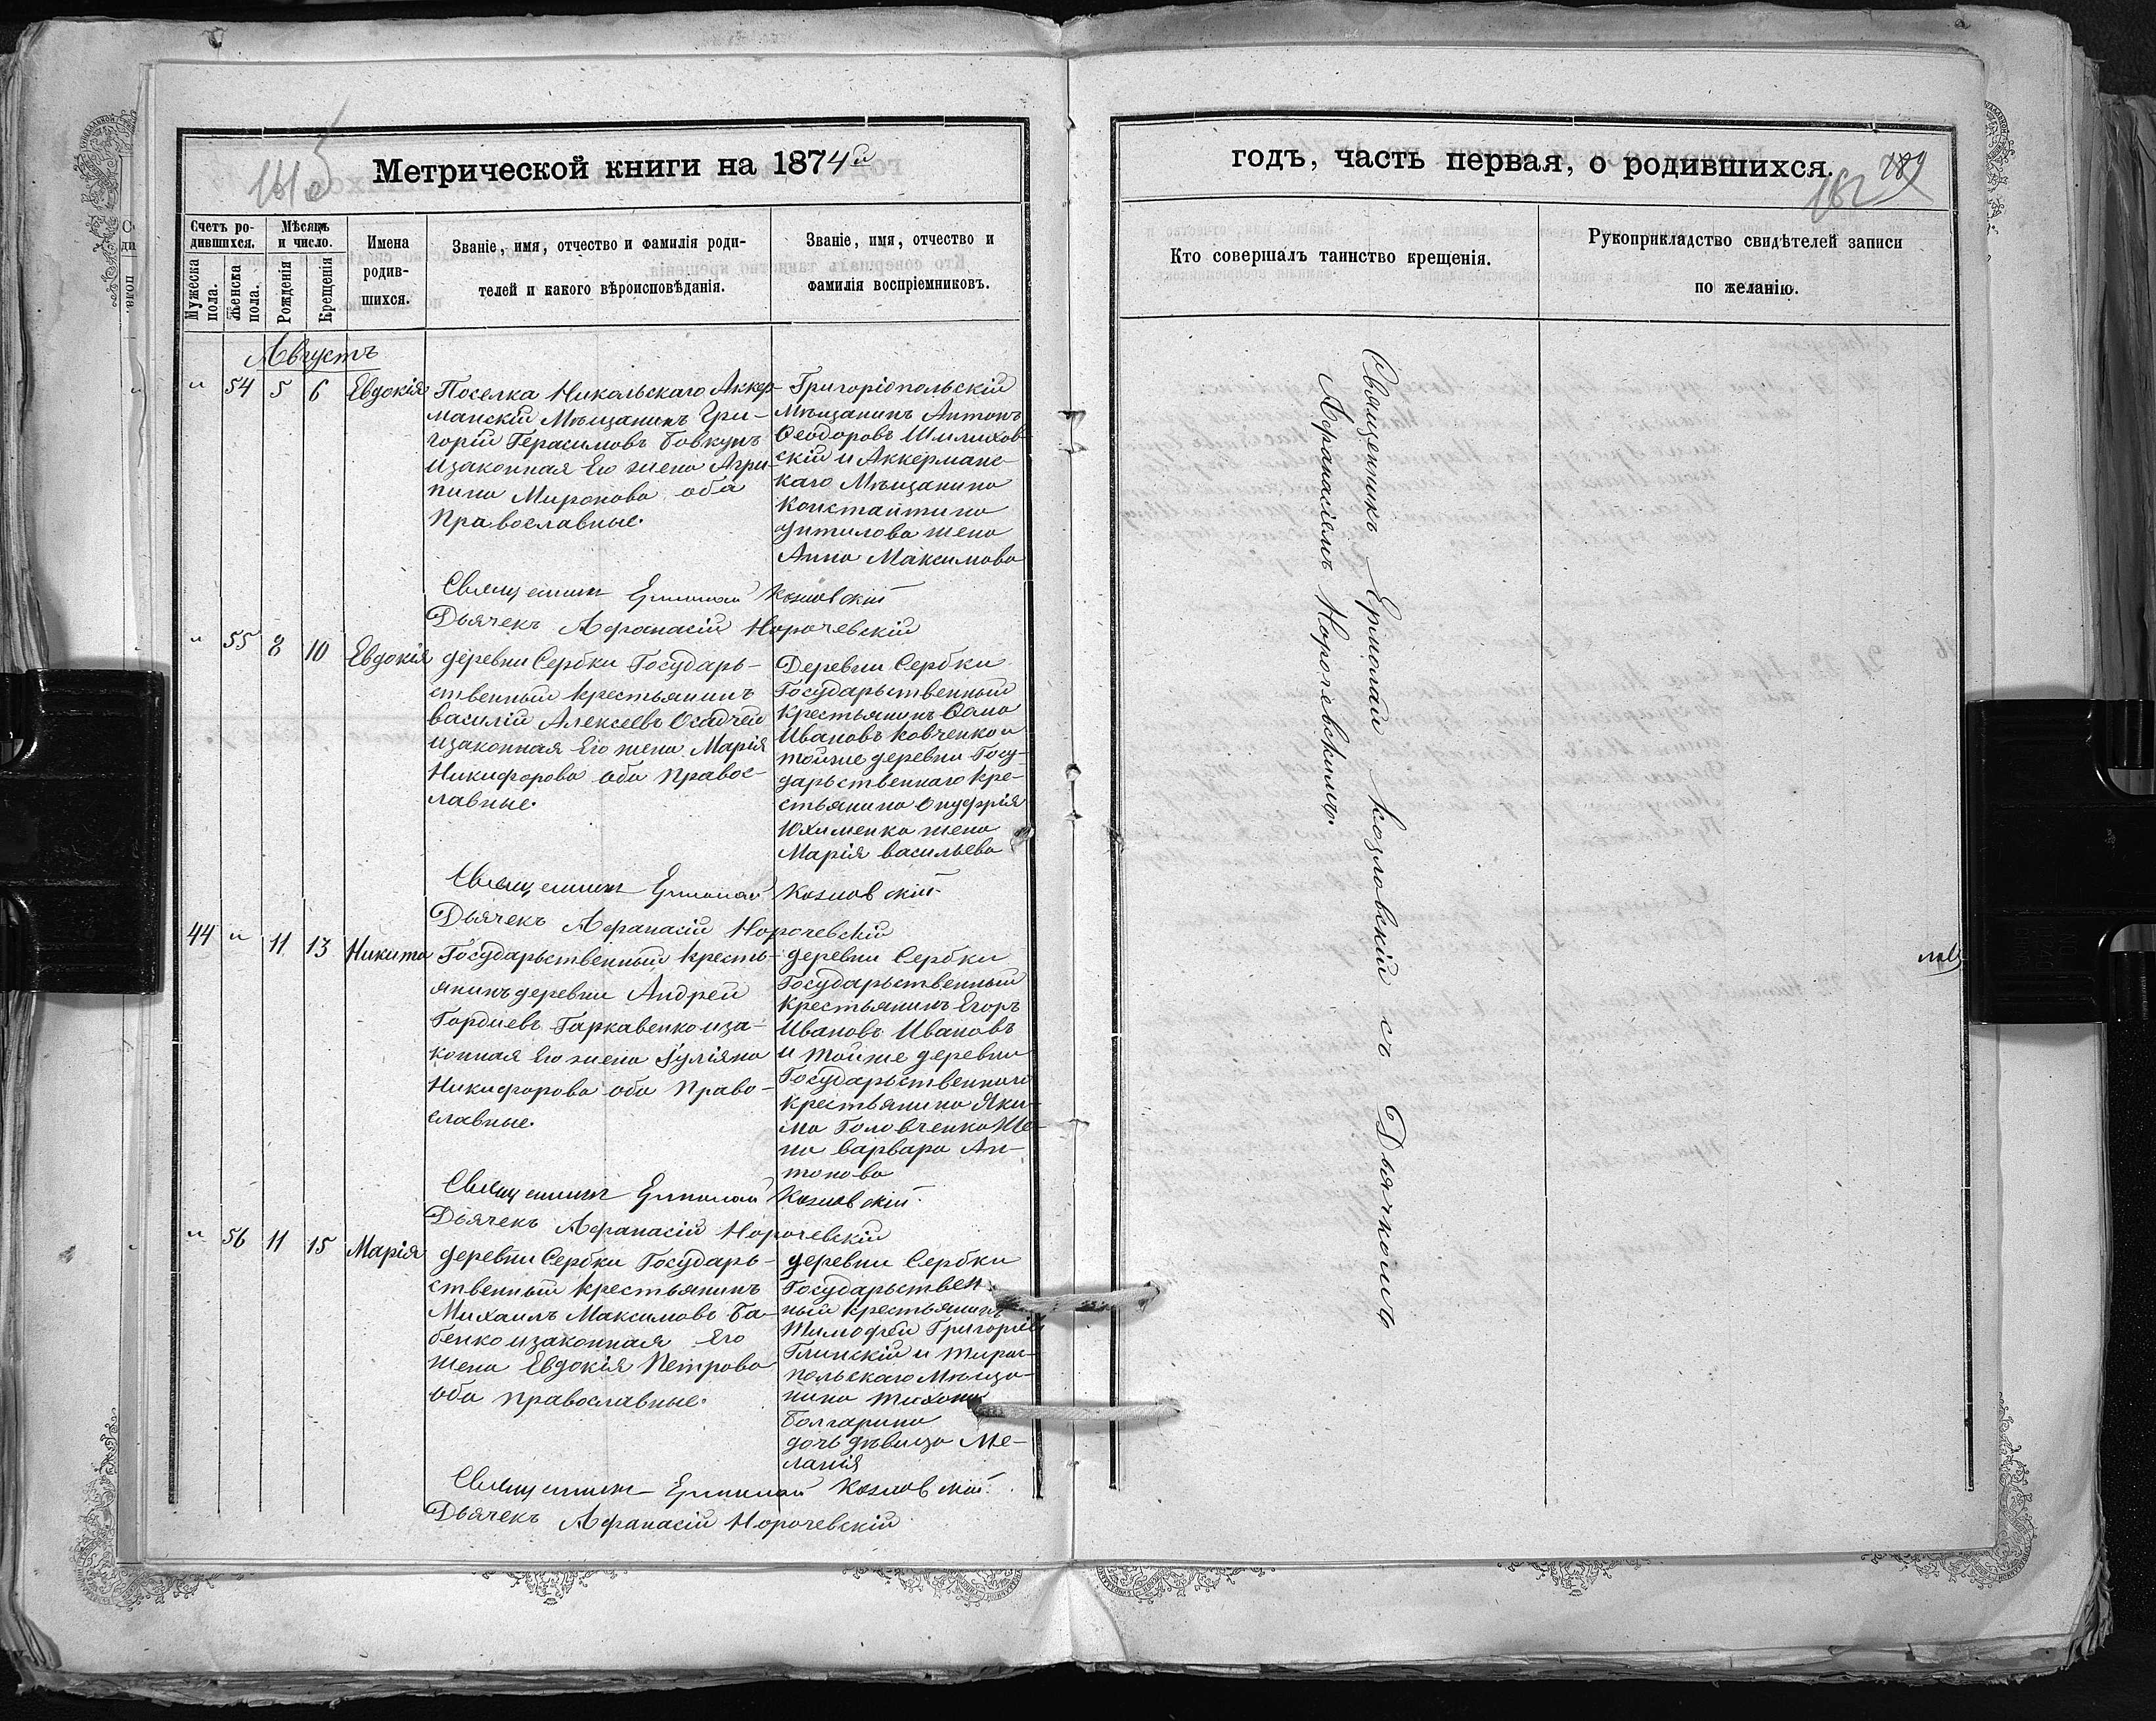 Метрической книги на 1874й
Счетъ ро-
дившихся.
Мужеска
пола.
Женска
пола.
Мѣсяцъ
и число.
Рожденія
Крещенія
Имена
родив-
шихся.
Званіе, имя, отчество и фамилія роди-
телей и какого вѣроисповѣданія.
Званіе, имя, отчество и
фамилія воспріемниковъ.
Августъ
" 54 5 6 Евдокія
Поселка Никольскаго Аккер-
манскій Мѣщанинъ Гри-
горій Герасимовъ Бовкунъ
изаконная Его жена Агри-
пина Миронова оба
Православные.
Григоріопольскій
Мѣщанинъ Антонъ
Ѳеодоровъ
скій и Аккерманс-
каго Мѣщанина
Константина
жена
Анна Максимова
Священникъ Ермолай Козловскій
Дьячекъ Афанасій Норочевскій
" 55 8 10 Евдокія
деревни Сербки Государь-
ственный крестьянинъ
василій Алексеевъ Осадчей
изаконная Его жена Марія
Никифорова оба правос-
лавные.
Деревни Сербки
Государьственный
Крестьянинъ Ѳома
Ивановъ Ковченко и
тойже деревни Госу-
дарьственнаго кре-
стьянина Онуфрія
Юхименка жена
Марія васильева
Священникъ Ермолай Козловскій
Дьячекъ Афанасій Норочевскій
44 " 11 13 Никита
Государьственный кресть-
янинъ деревни Андрей
Гордиевъ Гаркавенко иза-
конная Его жена Іуліяна
Никифорова оба Право-
славные.
деревни Сербки
Государьственный
крестьянинъ Егоръ
Ивановъ Ивановъ
и тойже деревни
Государьственнаго
крестьянина Яки-
ма Головченка Же-
на варвара Ан-
тонова
Священникъ Ермолай Козловскій
Дьячекъ Афанасій Норочевскій
" 56 11 15 Марія
деревни Сербки Государь-
ственный крестьянинъ
Михаилъ Максимовъ Ба-
бенко изаконная Его
жена Евдокія Петрова
оба православные.
деревни Сербки
Государьствен-
ный крестьянинъ
Тимофей Григоріев
Глинскій и тирас-
польскаго Мѣща-
нина Тихона
Болгарина
дочь дѣвица Ме-
ланія
Священникъ Ермолай Козловскій
Дьячекъ Афанасій Норочевскій
годъ, часть первая, о родившихся.
162 289
Кто совершалъ таинство крещенія.
Рукоприкладство свидѣтелей записи
по желанію.
Священникъ Ермолай Козловскій съ Дьячкомъ
Афанасіемъ Норочевскимъ.